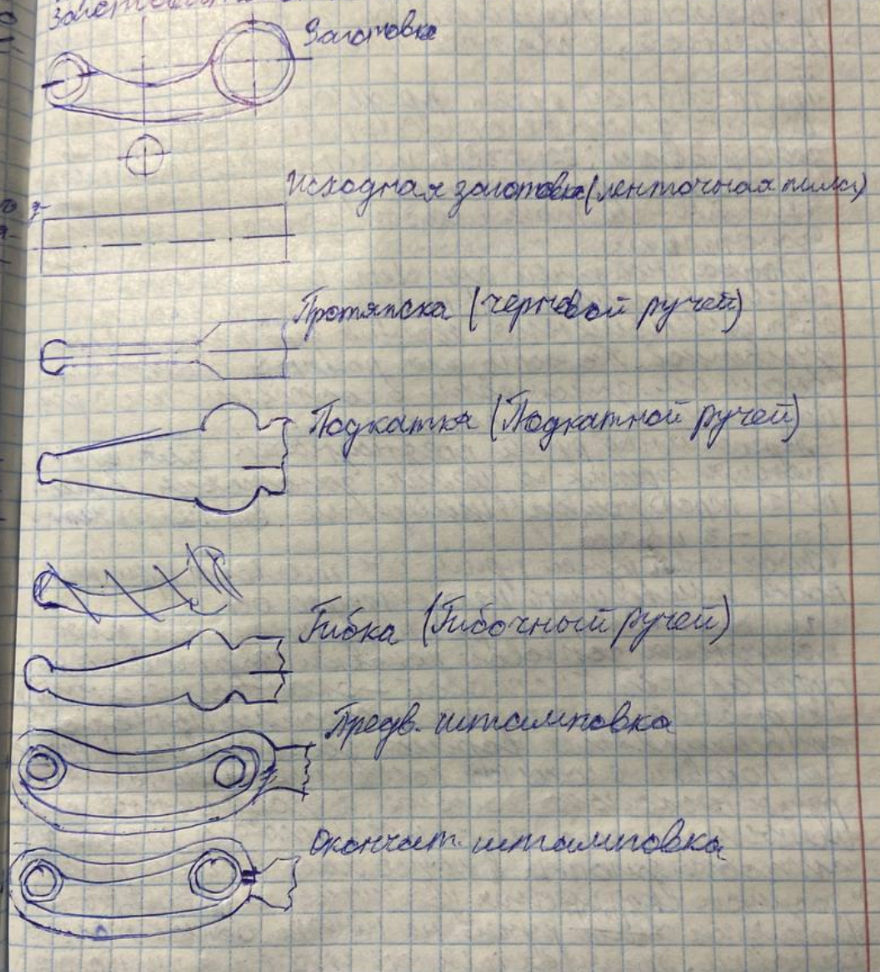 Заготовка
Исходная заготовка (ленточная пила)
Протяжка (черновой ручей)
Подкатка (Подкатной ручей)
Гибка (Гибочный ручей)
Предв. штамповка
Окончат. штамповка